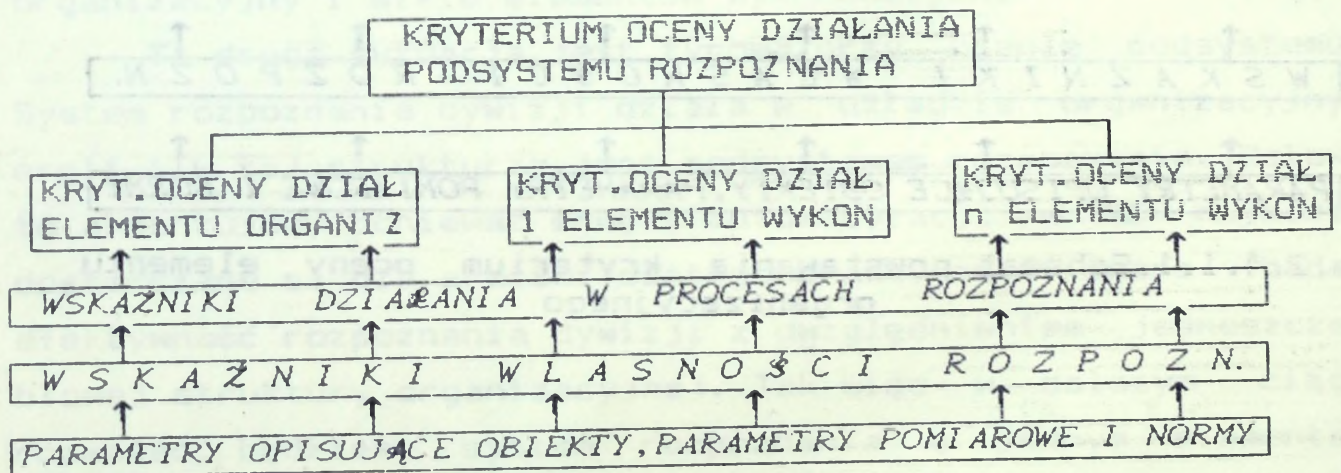 KRYTERIUM OCENY DZIAŁANIA
PODSYSTEMU ROZPOZNANIA
KRYT.OCENY DZIAŁ
ELEMENTU ORGANIZ
KRYT.OCENY DZIAŁ
1 ELEMENTU WYKON
KRYT.OCENY DZIAŁ
n ELEMENTU WYKON
WSKAŹNIKI DZIAŁANIA W PROCESACH ROZPOZNANIA
WSKAŹNIKI WŁASNOŚCI ROZPOZN.
PARAMETRY OPISUJĄCE OBIEKTY, PARAMETRY POMIAROWE I NORMY